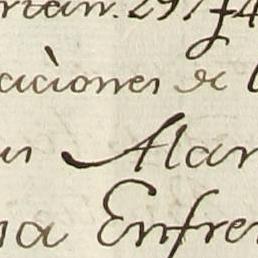 rtan. 297 4
aciones de l
us Alar
na Enfre